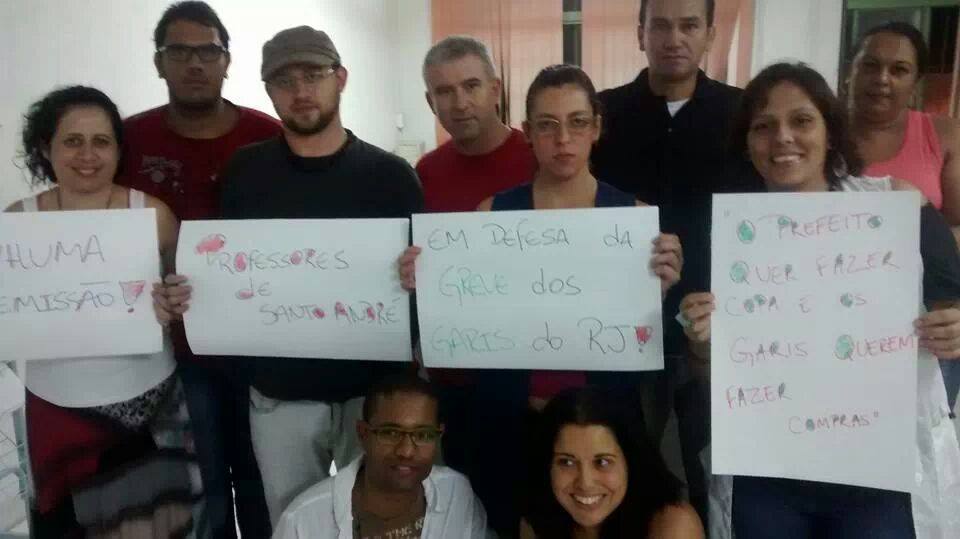 HUMA
EMISSÃO!
PROFESSORES
de
SANTO ANDRÉ
EM DEFESA da
GREVE dos
GARIS do RJ!
"O PREFEITO
QUER FAZER
COPA E OS
GARIS QUEREM
FAZER
COMPRAS"